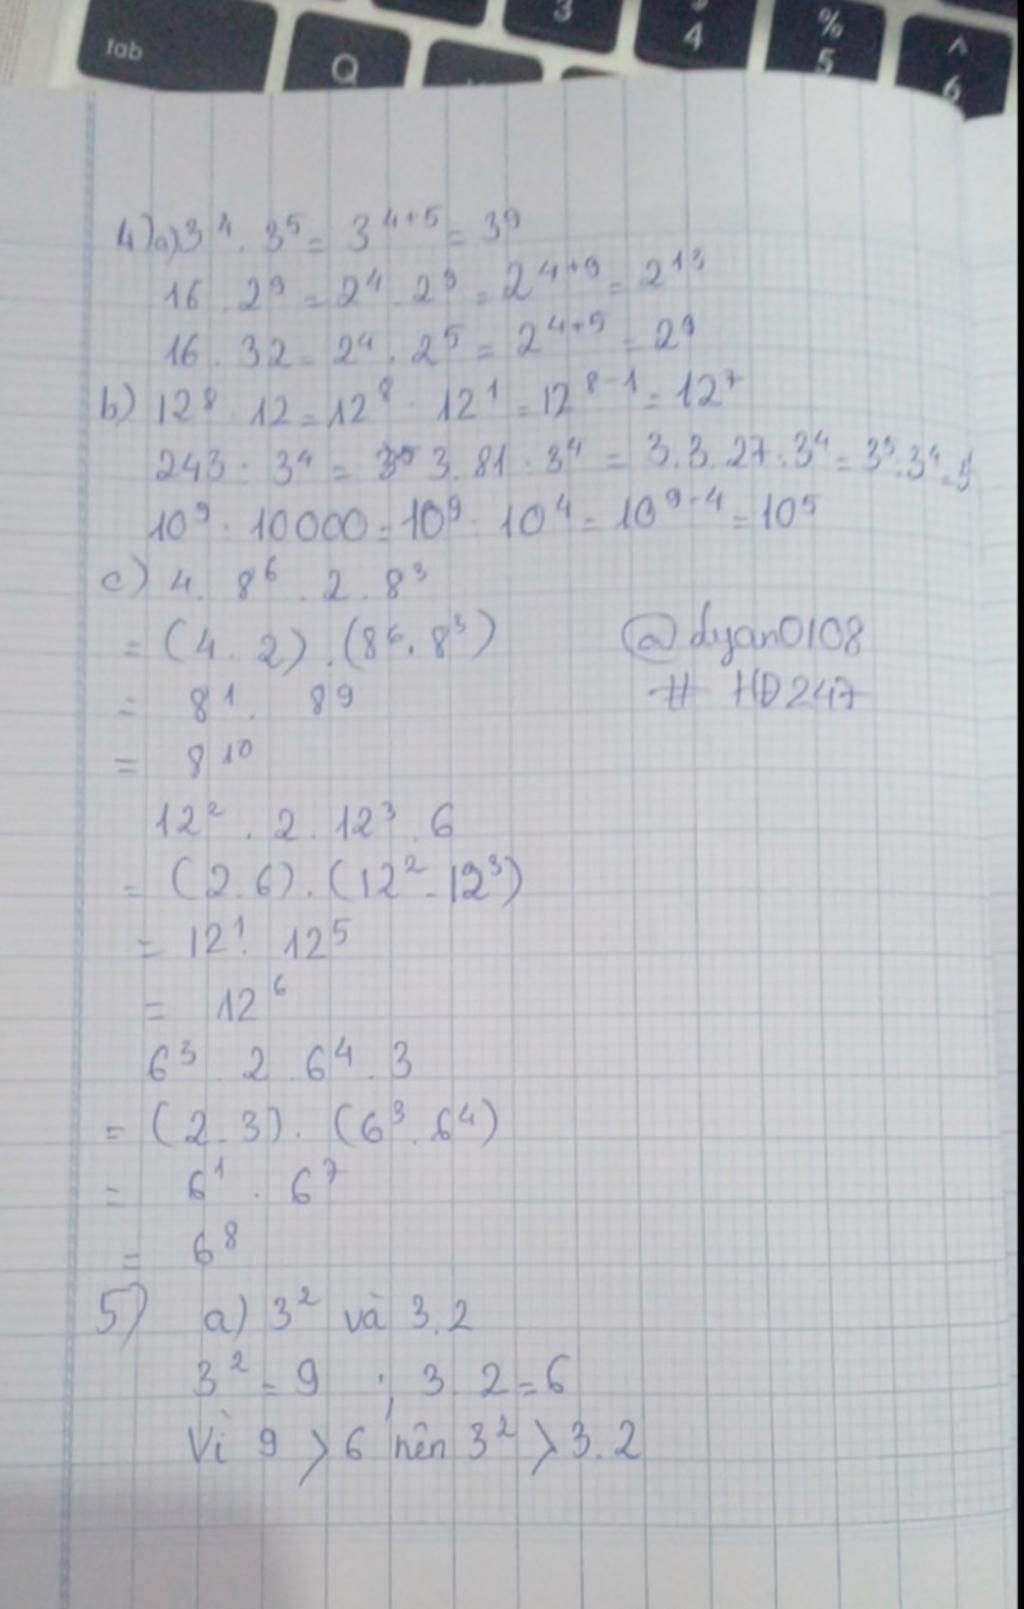 tab Q 3 4 % 5 ^ 6
4) a) 3⁴ . 3⁵ = 3⁴⁺⁵ = 3⁹
16 . 2⁹ = 2⁴ . 2⁹ = 2⁴⁺⁹ = 2¹³
16 . 32 = 2⁴ . 2⁵ = 2⁴⁺⁵ = 2⁹
b) 12⁸ : 12 = 12⁸ : 12¹ = 12⁸⁻¹ = 12⁷
243 : 3⁴ = 3 . 81 : 3⁴ = 3.3.27 : 3⁴ = 3⁵ : 3⁴ =
10⁹ : 10000 = 10⁹ : 10⁴ = 10⁹⁻⁴ = 10⁵
c) 4 . 8⁶ . 2 . 8³
= (4 . 2) . (8⁶ . 8³)
= 8¹ . 8⁹
= 8¹⁰
@dyan0108
# HD247
12² . 2 . 12³ . 6
= (2.6) . (12² . 12³)
= 12¹ . 12⁵
= 12⁶
6³ . 2 . 6⁴ . 3
= (2 . 3) . (6³ . 6⁴)
= 6¹ . 6⁷
= 6⁸
5) a) 3² và 3.2
3² = 9 ; 3.2 = 6
Vì 9 > 6 nên 3² > 3.2